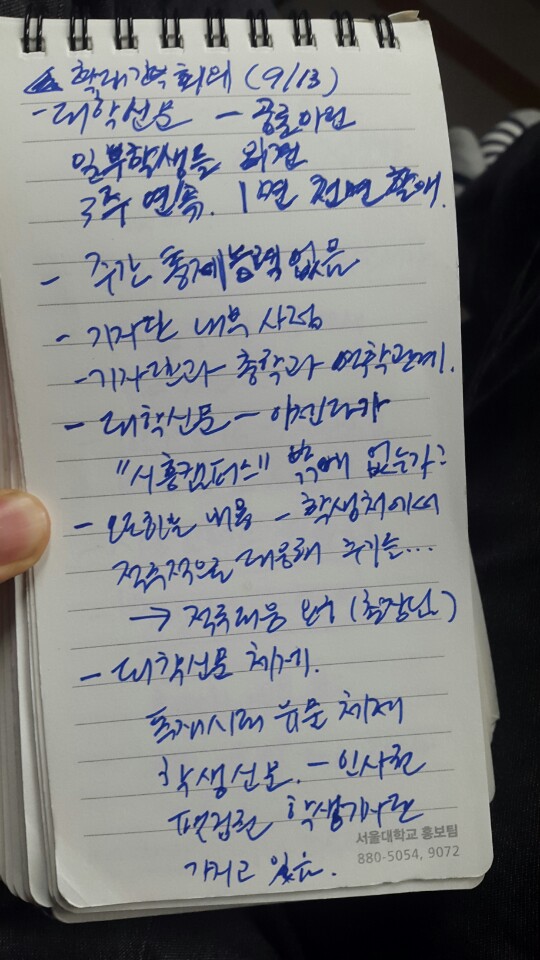 학내간부 회의 (9/13)
- 대학신문 - 공론이런
일부학생들 의견
3주 연속. 1면 전면 할애.
- 주간 통제능력 없음
- 기자단 내부 사정
- 기자단과 총학과 역학관계.
- 대학신문 - 아젠다가
"시흥캠퍼스" 밖에 없는가?
- 오해한 내용 - 학생처에서
적극적으로 대응해 주기를...
→ 적극대응 요구 (총장님)
- 대학신문 체제.
독재시대 유물 체제
학생신문. - 인사권
편집권 학생기자단
가지고 있음.
서울대학교 홍보팀
880-5054, 9072